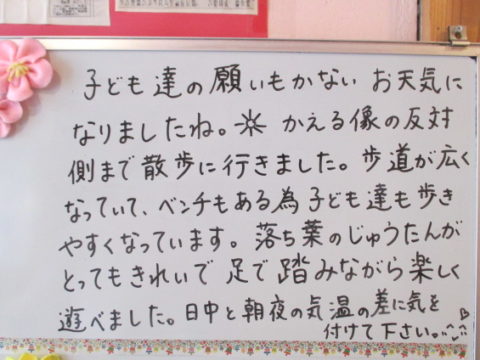 子ども達の願いもかない お天気に
なりましたね。☀ かえる像の反対
側まで散歩に行きました。歩道が広く
なっていて、ベンチもある為子ども達も歩き
やすくなっています。落ち葉のじゅうたんが
とってもきれいで足で踏みながら楽しく
遊べました。日中と朝夜の気温の差に気を
付けて下さい。